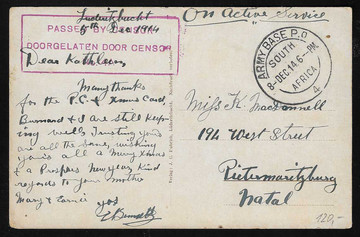 Luderitzbucht
8th Dec 1914
PASSED BY CENSOR
DOORGELATEN DOOR CENSOR
Dear Kathleen
Many thanks
for the P.C. & Xmas Card,
Burnand & I are still keep-
ing well. Trusting you
are all the same, wishing
you's all a Merry Xmas
& a Prosp's New Year, kind
regards to your mother
Mary &
yrs
On Active Service
ARMY BASE P.O.
SOUTH AFRICA
8-DEC.14.6-PM
4
Miss K. MacDonnell
194 West Street
Pietermaritzburg
Natal
120,-